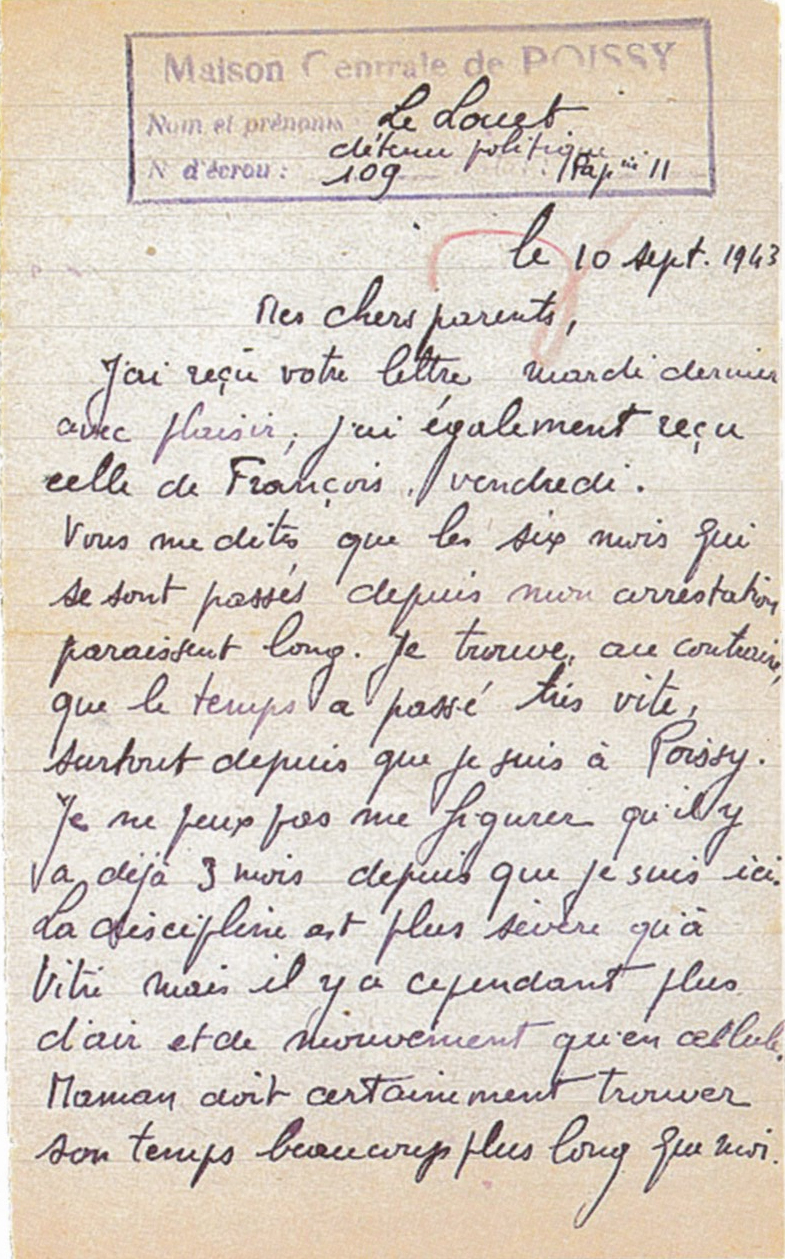 Maison Centrale de POISSY
Nom et prénoms Le Louet
détenu politique
N° d'écrou : 109 Pap ie 11
le 10 sept. 1943
Mes chers parents,
J'ai reçu votre lettre mardi dernier
avec plaisir, j'ai également reçu
celle de François, vendredi.
Vous me dites que les six mois qui
se sont passés depuis mon arrestation
paraissent long. Je trouve, au contraire,
que le temps a passé très vite,
surtout depuis que je suis à Poissy.
Je ne peux pas me figurer qu'il y
a déjà 3 mois depuis que je suis ici.
La discipline est plus sévère qu'à
Vitré mais il y a cependant plus
d'air et de mouvement qu'en cellule.
Maman doit certainement trouver
son temps beaucoup plus long que moi.